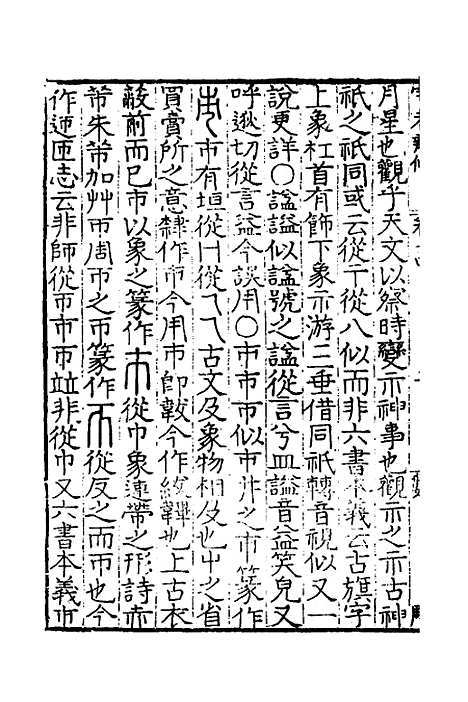 月星也觀乎天文以察時變示神事也觀示之示古神
祇之祇同或云從干從八似而非六書本義云古旗字
上象杠首有飾下象示游二垂借同祇轉音視似又一
說更詳○諡謚似諡號之諡從言兮皿謚音益笑皃又
呼逖切從言益今誤用○巿市帀似市井之市篆作
市有垣從冂從乁乁古文及象物相及也㞢之省
買賣所之意隸作市今用巿卽韍今作紱韠也上古衣
蔽前而已巿以象之篆作巿從巾象連帶之形詩赤
芾朱芾加艸帀周帀之帀篆作帀從反之而帀也今
作迊匝志云非師從帀市帀竝非從巾又六書本義巿